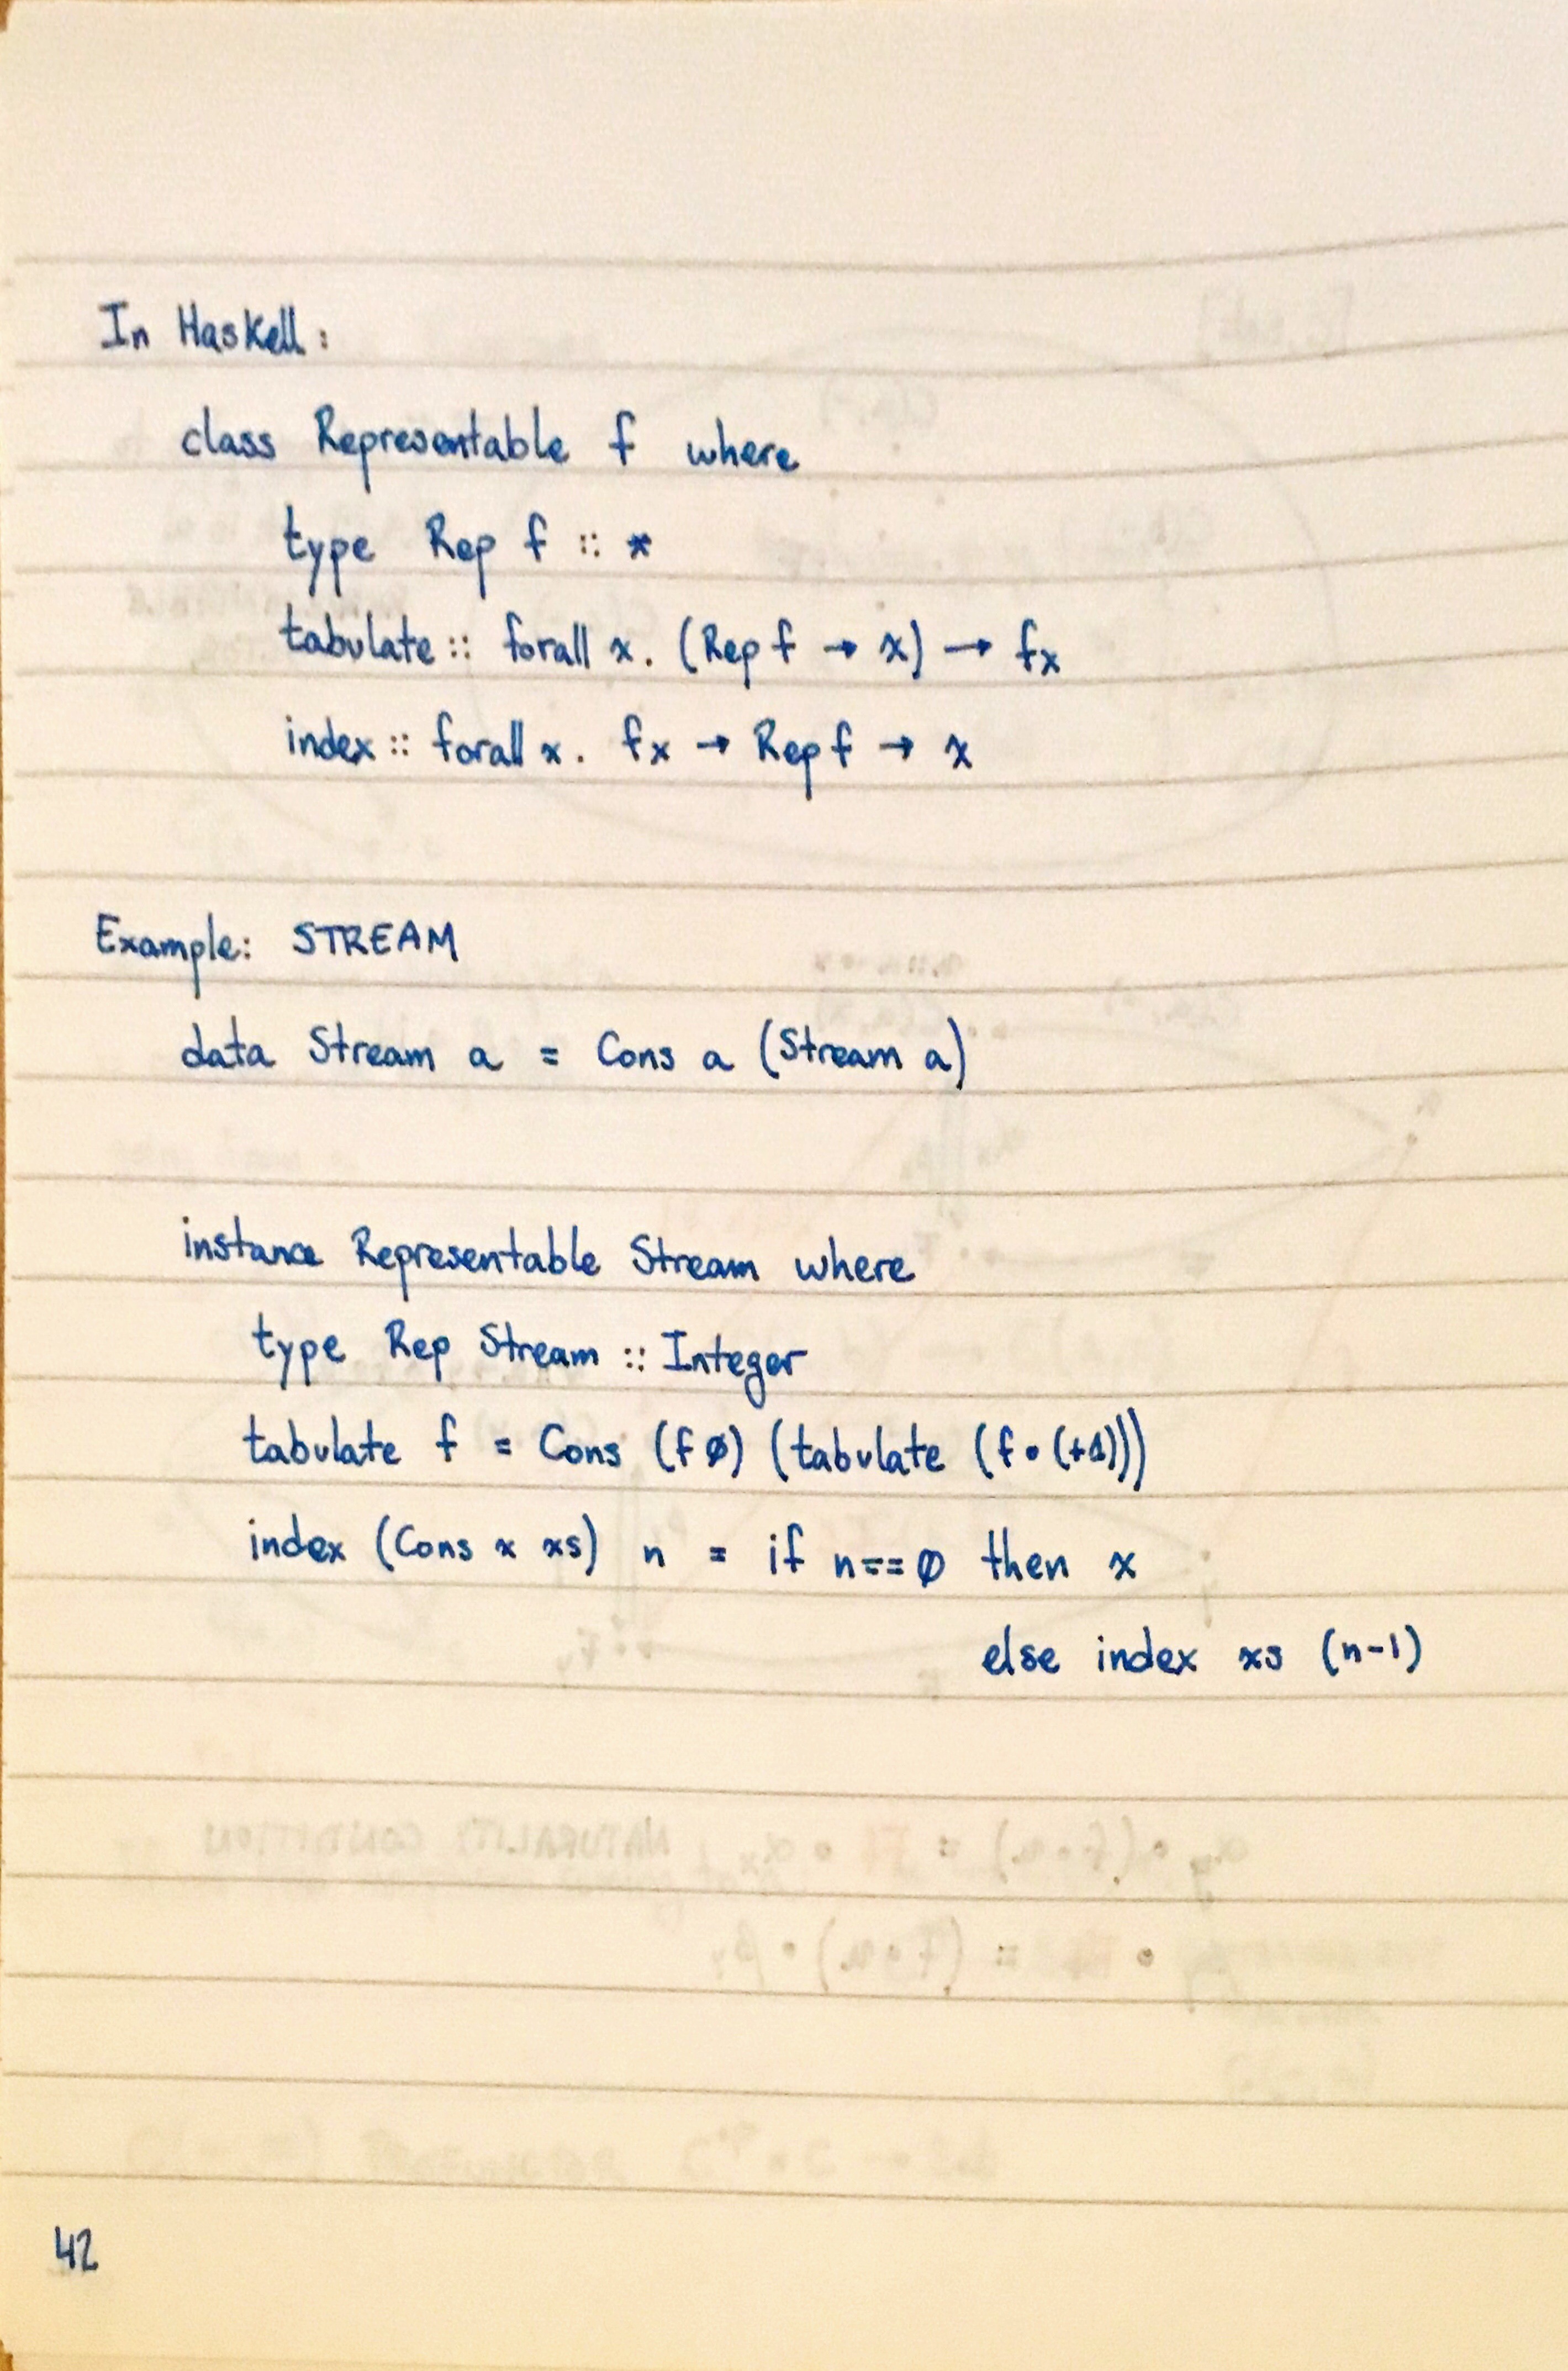 In Haskell:
class Representable f where
type Rep f :: *
tabulate :: forall x. (Rep f → x) → f x
index :: forall x. f x → Rep f → x
Example: STREAM
data Stream a = Cons a (Stream a)
instance Representable Stream where
type Rep Stream :: Integer
tabulate f = Cons (f 0) (tabulate (f • (+1)))
index (Cons x xs) n = if n == 0 then x
else index xs (n-1)
42